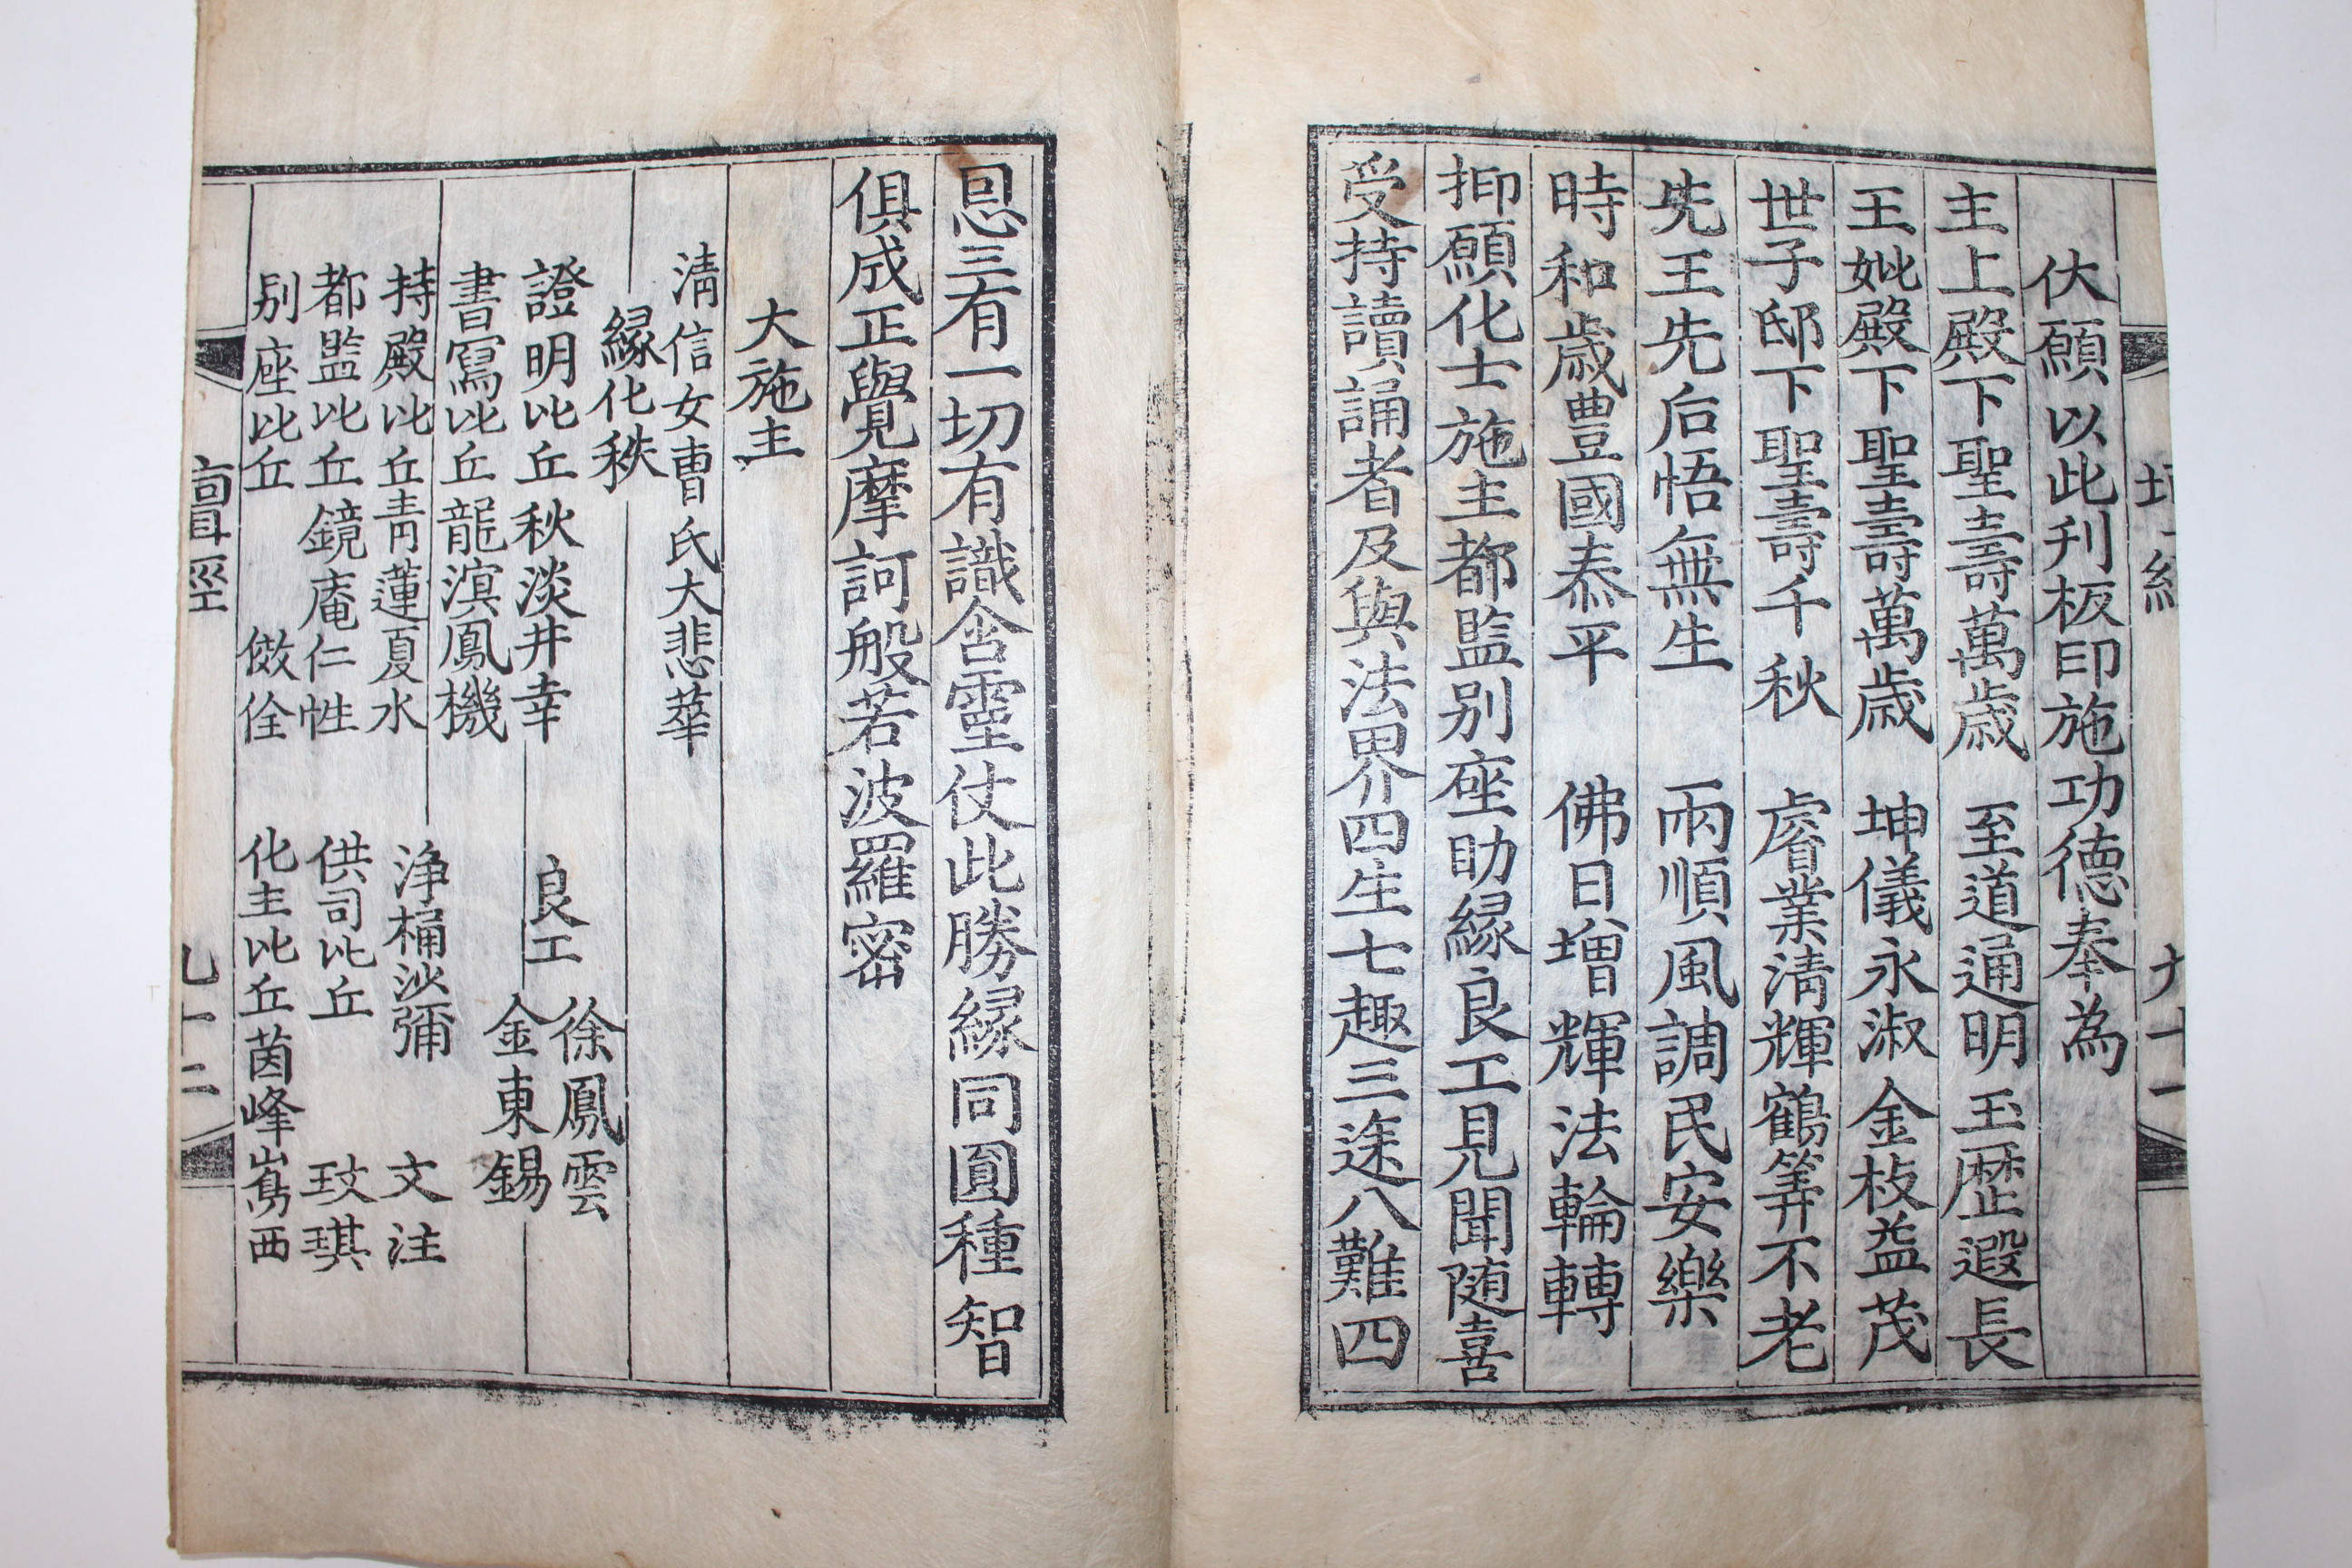 伏願以此刋板印施功德奉為
主上殿下聖壽萬歲 至道通明 玉歴遐長
王妣殿下聖壽萬歲 坤儀永淑 金枝益茂
世子邸下聖壽千秋 睿業淸輝 鶴筭不老
先王先后悟無生 雨順風調民安樂
時和歲豊國泰平 佛日增輝法輪轉
抑願化士施主都監別座助緣良工見聞随喜
受持讀誦者及與法界四生七趣三途八難四
恩三有一切有識含靈仗此勝緣同圓種智
俱成正覺摩訶般若波羅密
大施主
淸信女曺氏大悲華
緣化秩
證明比丘秋淡井幸 良工 徐鳳雲
金東錫
書寫比丘龍溟鳳機
持殿比丘靑蓮夏水 淨桶沙彌 文注
都監比丘鏡庵仁性 供司比丘 玟琪
別座比丘 儆佺 化主比丘茵峰嵩西